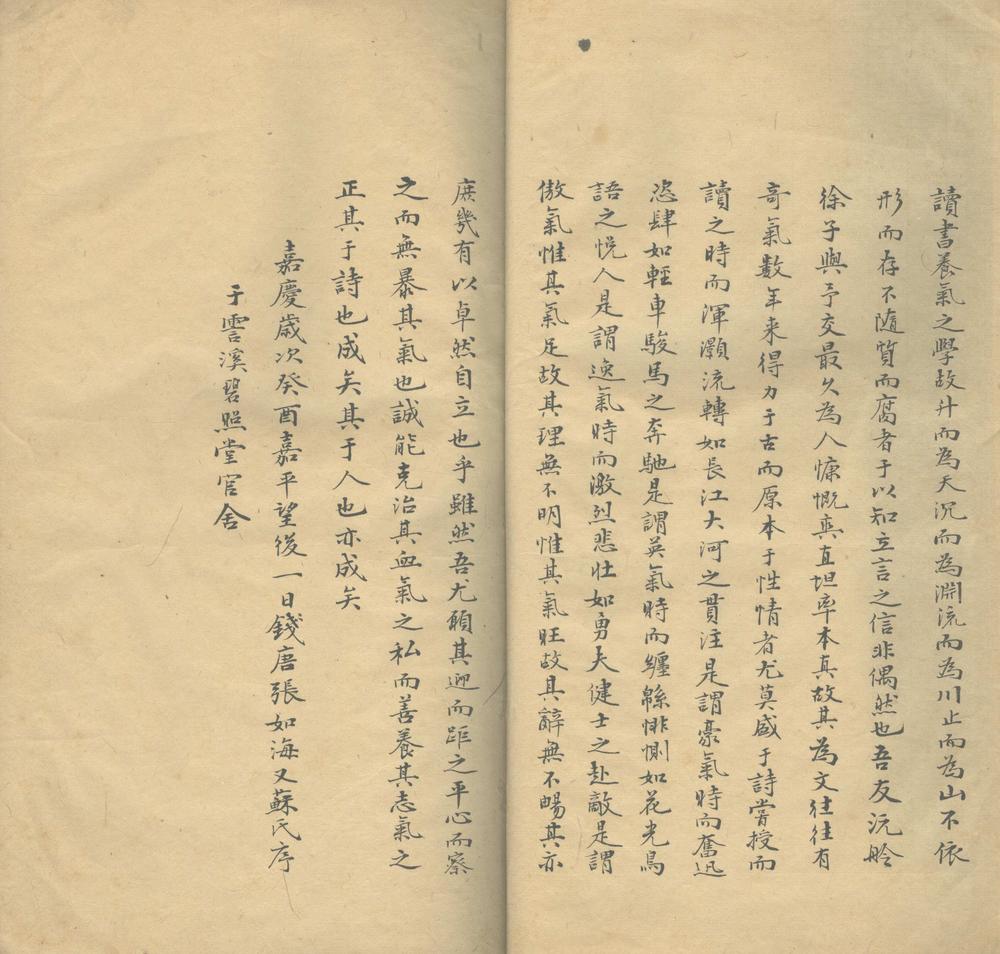 讀書養氣之學故升而為天沉而為淵流而為川止而為山不依
形而存不隨質而腐者于以知立言之信非偶然也吾友沅舲
徐子與予交最久為人慷慨爽直坦率本真故其為文往往有
奇氣數年来得力于古而原本于性情者尤莫盛于詩嘗授而
讀之時而渾灝流轉如長江大河之貫注是謂豪氣時而奮迅
恣肆如輕車駿馬之奔馳是謂英氣時而纏緜悱惻如花光鳥
語之悅人是謂逸氣時而激烈悲壮如勇夫健士之赴敵是謂
傲氣惟其氣足故其理無不明惟其氣旺故其辭無不暢其亦
庶幾有以卓然自立也乎雖然吾尤願其迎而距之平心而察
之而無暴其氣也誠能克治其血氣之私而善養其志氣之
正其于詩也成矣其于人也亦成矣
嘉慶歲次癸酉嘉平望後一日錢唐張如海又蘇氏序
于霅溪碧照堂官舍